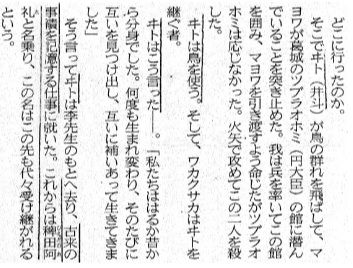 どこに行ったのか。
そこでヰト（井斗）が鳥の群れを飛ばして、マ
ヨワが葛城のツブラオホミ（円大臣）の館に潜ん
でいることを突き止めた。我は兵を率いてこの館
を囲み、マヨワを引き渡すよう命じたがツブラオ
ホミは応じなかった。火矢で攻めてこの二人を殺
した。
ヰトは鳥を使う。そして、ワカクサカはヰトを
継ぐ者。
ヰトはこう言った――。「私たちははるか昔か
ら分身でした。何度も生まれ変わり、そのたびに
互いを見つけ出し、互いに補いあって生きてきま
した」
そう言ってヰトは李先生のもとへ去り、古来の
事績を記憶する仕事に就いた。これからは稗田阿
礼と名乗り、この名はこの先も代々受け継がれる
という。